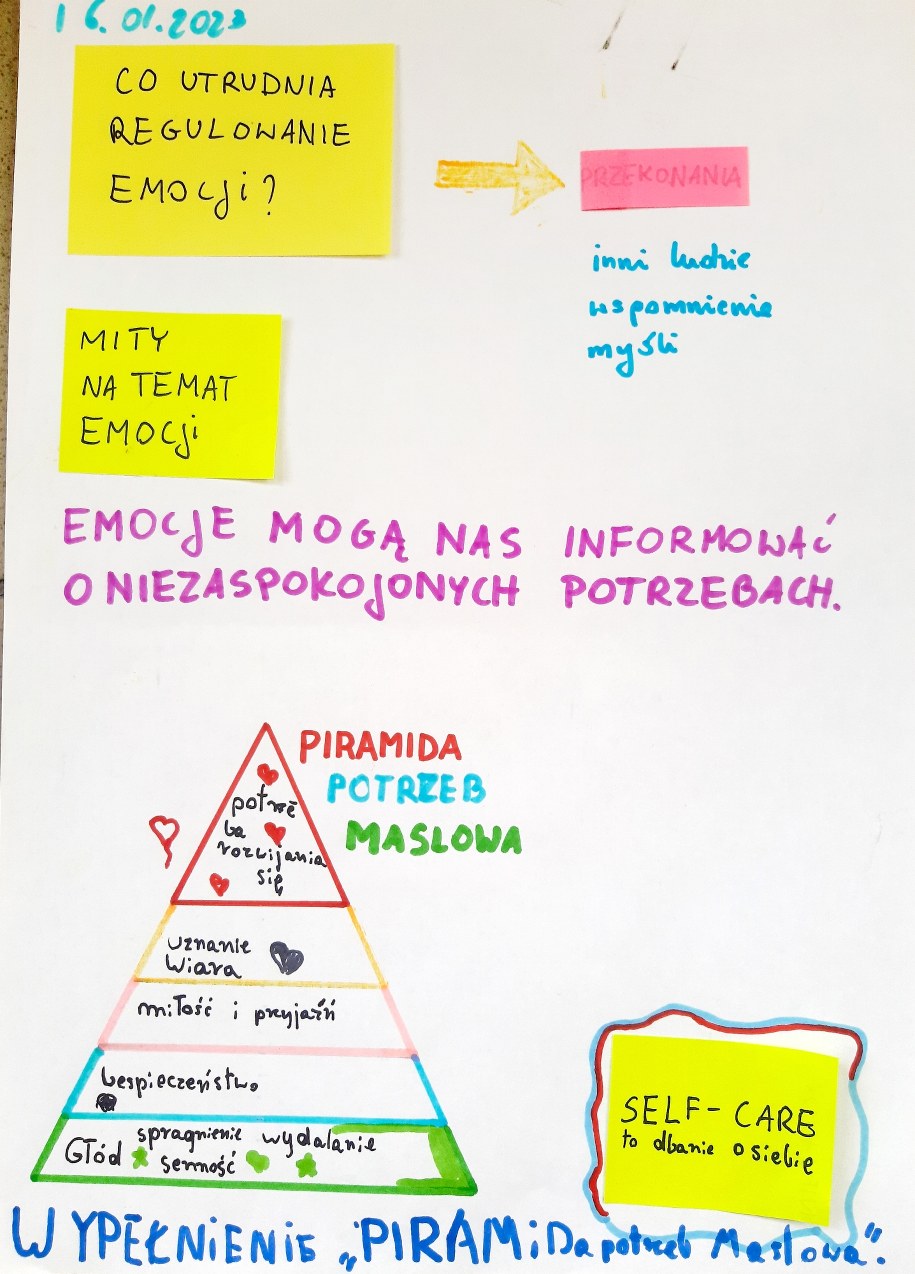 16.01.2023
CO UTRUDNIA
REGULOWANIE
EMOCJi?
PRZEKONANIA
inni ludzie
wspomnienia
myśli
MITY
NA TEMAT
EMOCJi
EMOCJE MOGĄ NAS INFORMOWAĆ
O NIEZASPOKOJONYCH POTRZEBACH.
PIRAMIDA
POTRZEB
MASLOWA
potrze
ba
rozwijania
się
uznanie
wiara
miłość i przyjaźń
bespieczeństwo
Głód spragnienie wydalanie
senność
SELF-CARE
to dbanie o siebie
WYPEŁNIENIE „PIRAMiDa potrzeb Maslowa".